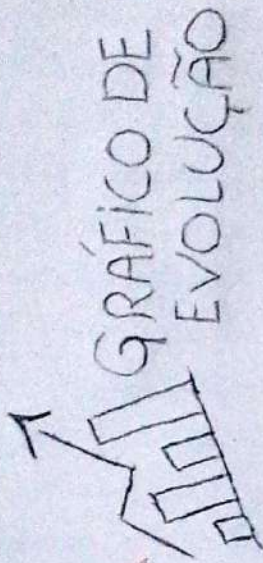 GRÁFICO DE
EVOLUÇÃO